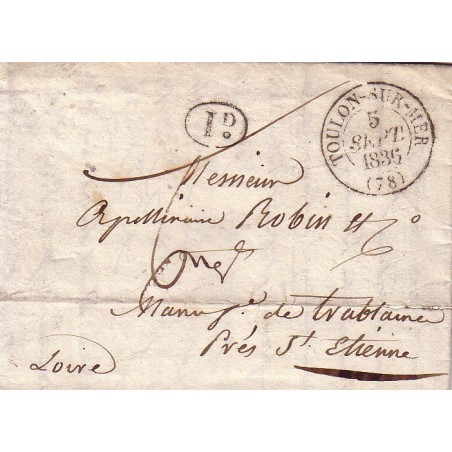 1D.
TOULON-SUR-MER
5
SEPT.
1836
(78)
Messieur
Apollinaire Robin et Co
Manufe. de trablaine
Prés St. Etienne
Loire